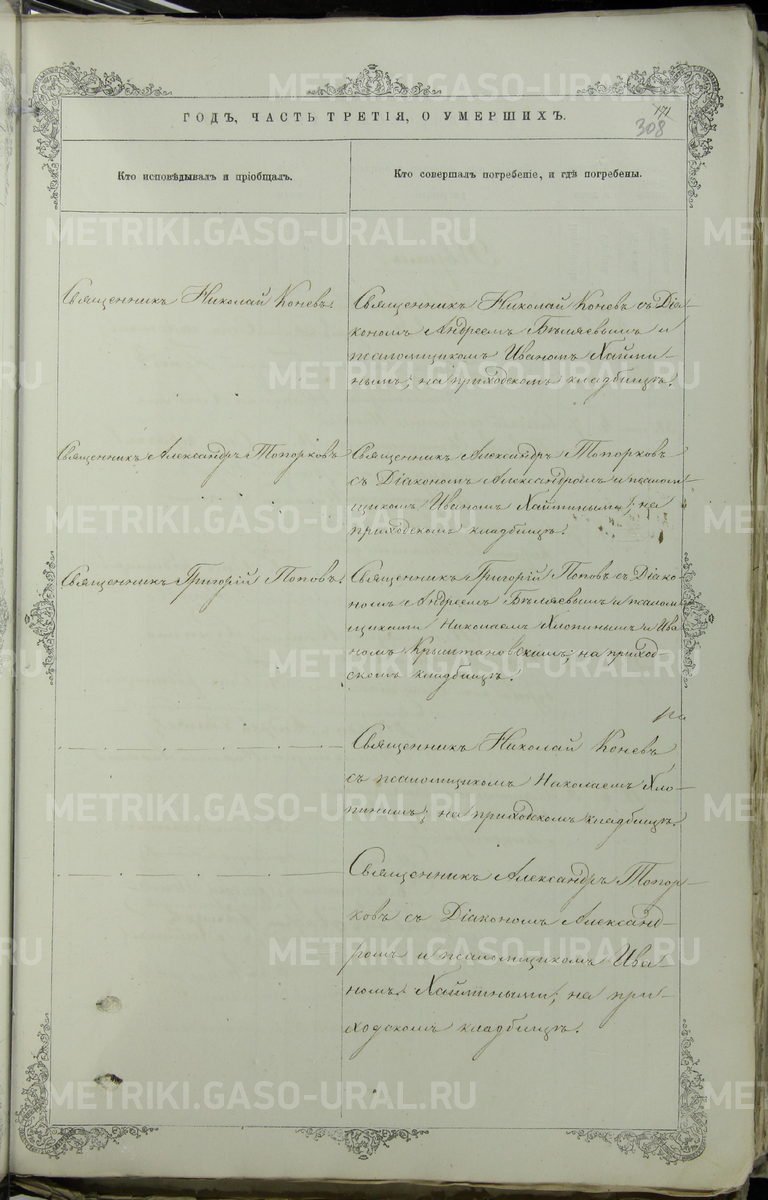 ГОДЪ, ЧАСТЬ ТРЕТІЯ, О УМЕРШИХЪ.
171
308
Кто исповѣдывалъ и пріобщалъ.
Кто совершалъ погребеніе, и гдѣ погребены.
Священникъ Николай Коневъ.
Священникъ Николай Коневъ съ Діа-
кономъ Андреемъ Бѣляевымъ и
псаломщикомъ Иваномъ Хайми-
нымъ; на приходскомъ кладбищѣ.
Священникъ Александръ Топорковъ
Священникъ Александръ Топорковъ
съ Діакономъ Александромъ и псалом-
щикомъ Иваномъ Хаймиными; на
приходскомъ кладбищѣ.
Священникъ Григорій Поповъ.
Священникъ Григорій Поповъ съ Діако-
номъ Андреемъ Бѣляевымъ и псалом-
щиками Николаемъ Хлопинымъ и Ива-
номъ Крыштановскимъ; на приход-
скомъ кладбищѣ.
Священникъ Николай Коневъ
съ псаломщикомъ Николаемъ Хло-
пинымъ; на приходскомъ кладбищѣ.
Священникъ Александръ Топор-
ковъ съ Діакономъ Александ-
ромъ и псаломщикомъ Ива-
номъ Хаймиными; на при-
ходскомъ кладбищѣ.
METRIKI.GASO-URAL.RU